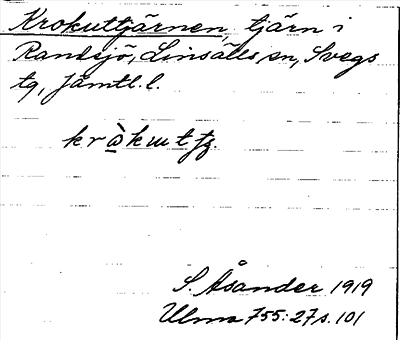 Krokuttjärnen, tjärn i
Randsjö, Linsälls sn, Svegs
tg, Jämtl. l.
S. Åsander 1919
Ulma 755:27 s. 101